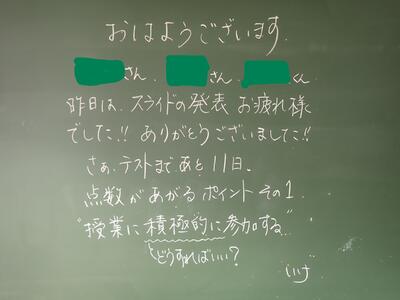 おはようございます.
さん. さん. くん.
昨日は、スライドの発表 お疲れ様
でした!! ありがとうございました!!
さぁ、テストまで あと 11日。
点数があがる ポイント その1
"授業に積極的に参加する"
どうすればいい?